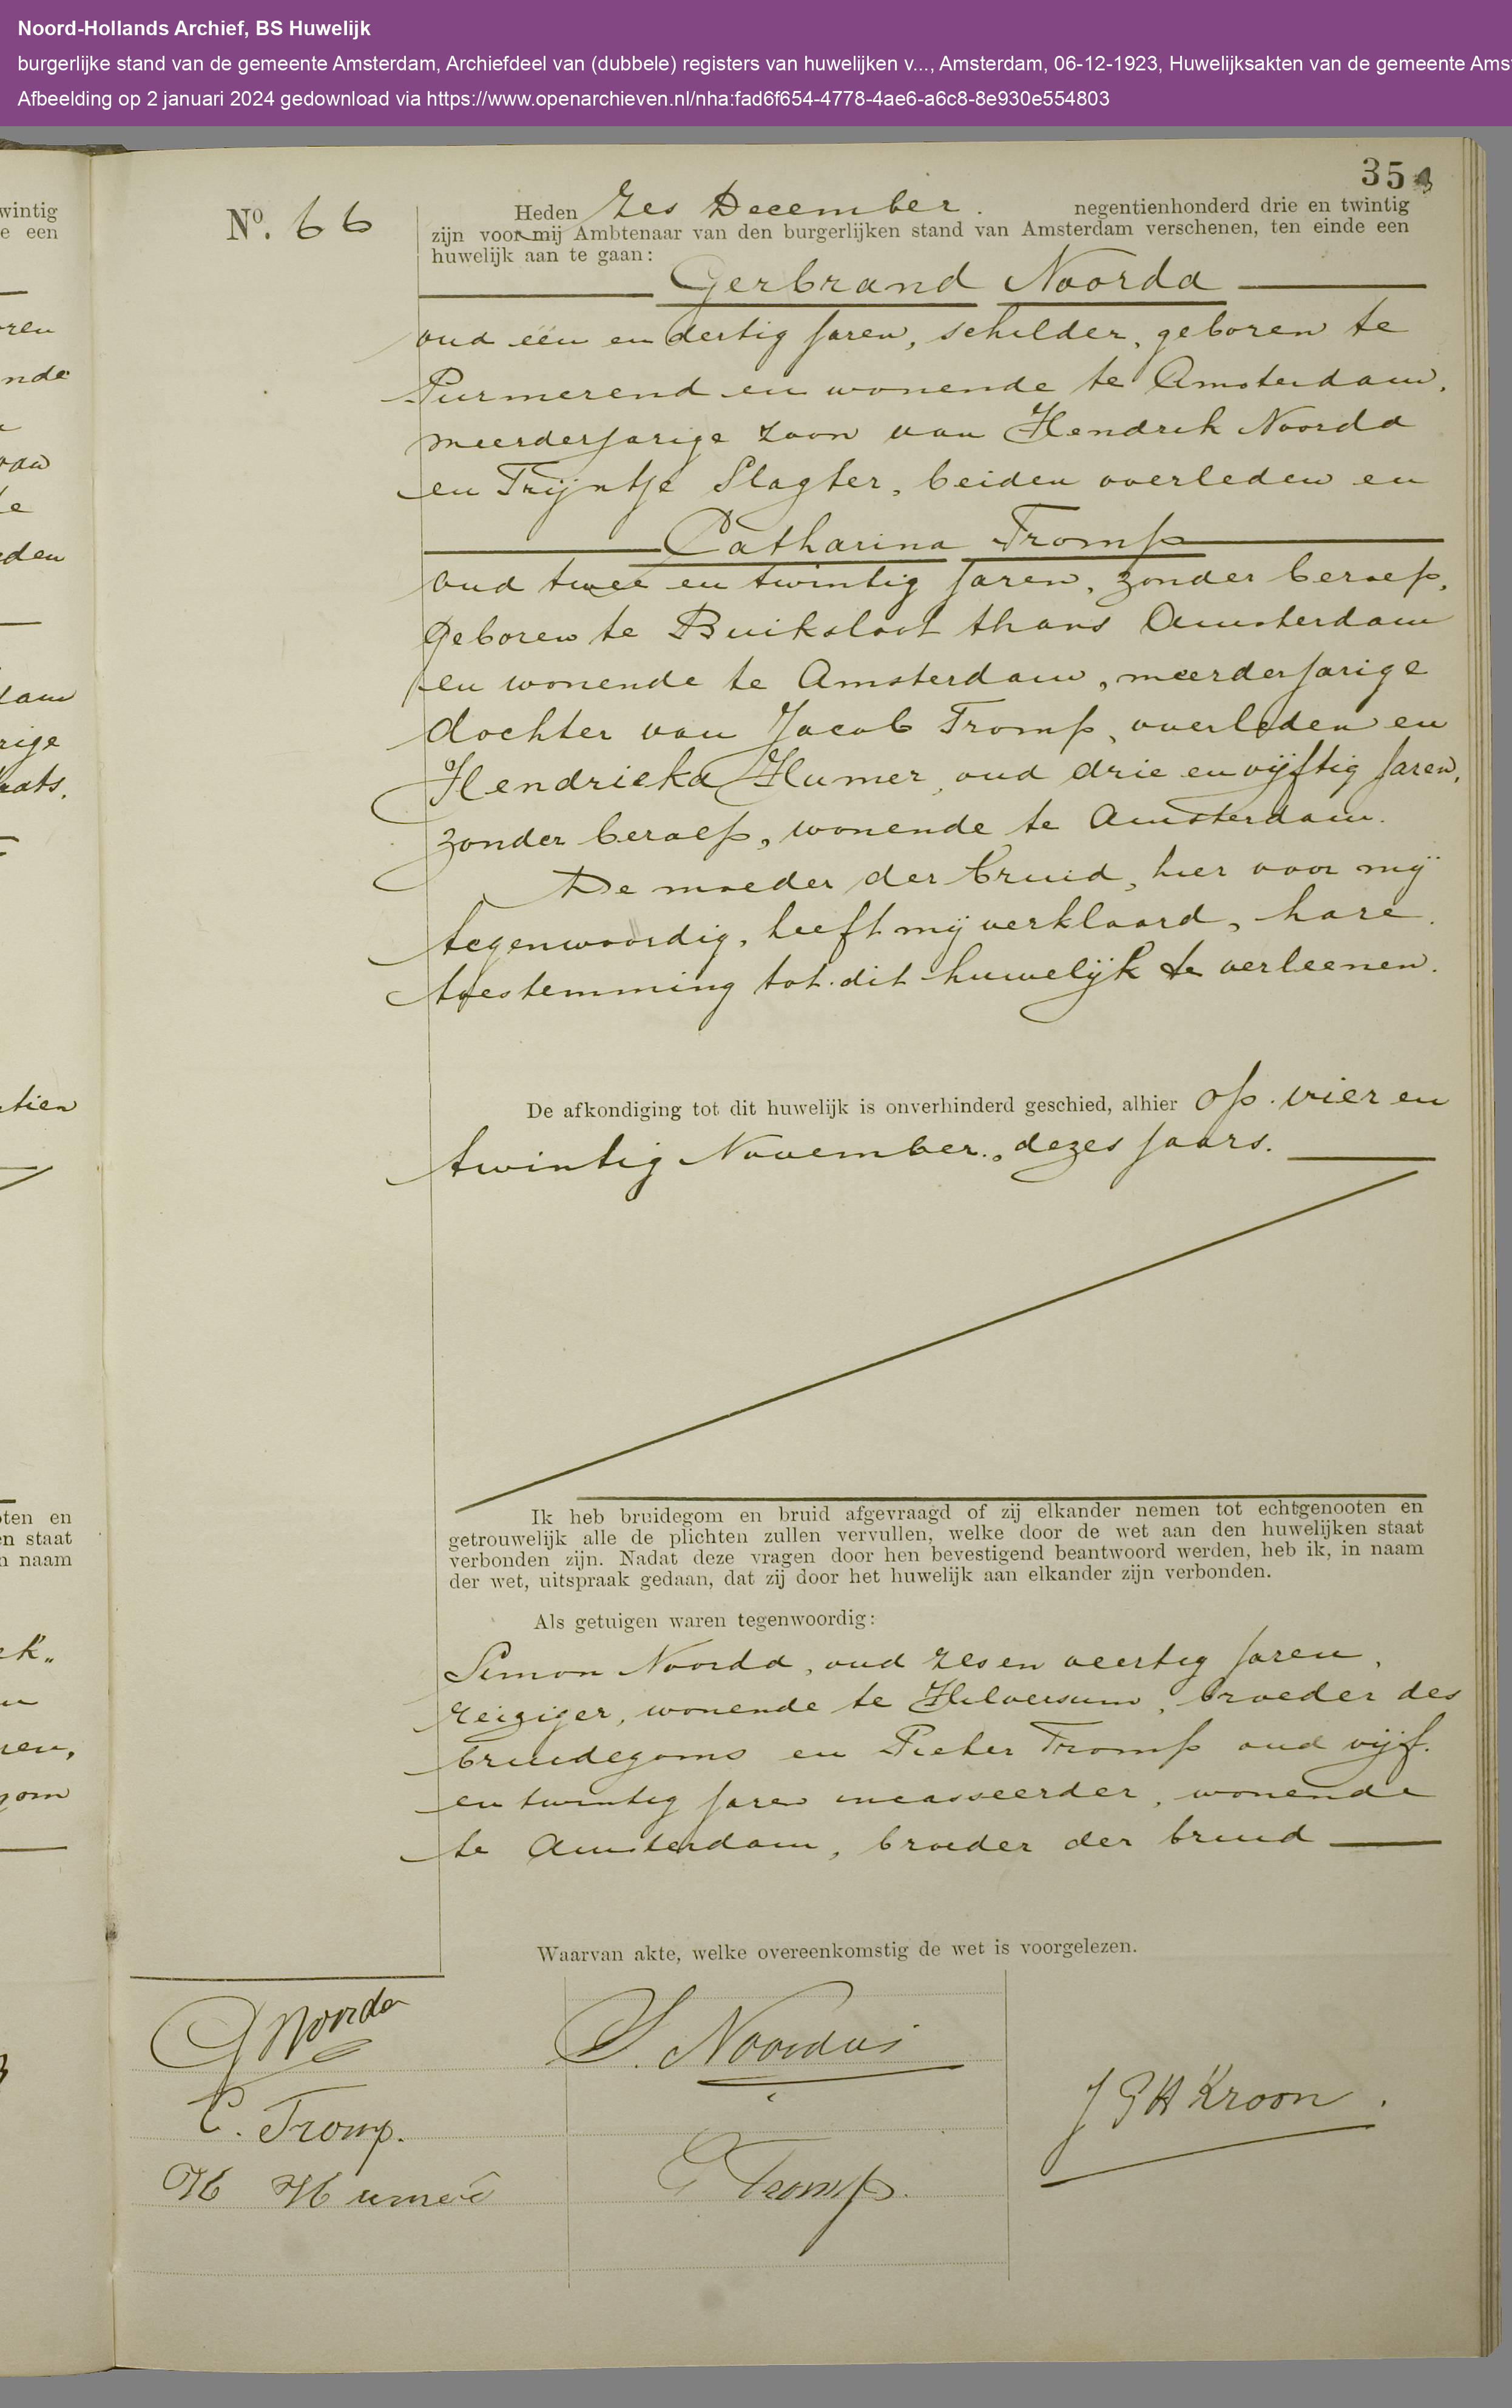 Noord-Hollands Archief, BS Huwelijk
burgerlijke stand van de gemeente Amsterdam, Archiefdeel van (dubbele) registers van huwelijken v..., Amsterdam, 06-12-1923, Huwelijksakten van de gemeente Ams
Afbeelding op 2 januari 2024 gedownload via https://www.openarchieven.nl/nha:fad6f654-4778-4ae6-a6c8-8e930e554803
35
No. 66
Heden Zes December. negentienhonderd drie en twintig
zijn voor mij Ambtenaar van den burgerlijken stand van Amsterdam verschenen, ten einde een
huwelijk aan te gaan:
Gerbrand Noorda
oud één en dertig jaren, schilder, geboren te
Purmerend en wonende te Amsterdam,
meerderjarige zoon van Hendrik Noorda
en Trijntje Slagter, beiden overleden en
Catharina Tromp
oud twee en twintig jaren, zonder beroep,
geboren te Buiksloot thans Amsterdam
en wonende te Amsterdam, meerderjarige
dochter van Jacob Tromp, overleden en
Hendrieka Humer, oud drie en vijftig jaren,
zonder beroep, wonende te Amsterdam.
De moeder der bruid, hier voor mij
tegenwoordig, heeft mij verklaard, hare
toestemming tot dit huwelijk te verleenen.
De afkondiging tot dit huwelijk is onverhinderd geschied, alhier op vier en
twintig November, dezes jaars.
Ik heb bruidegom en bruid afgevraagd of zij elkander nemen tot echtgenooten en
getrouwelijk alle de plichten zullen vervullen, welke door de wet aan den huwelijken staat
verbonden zijn. Nadat deze vragen door hen bevestigend beantwoord werden, heb ik, in naam
der wet, uitspraak gedaan, dat zij door het huwelijk aan elkander zijn verbonden.
Als getuigen waren tegenwoordig:
Simon Noorda, oud zes en veertig jaren,
reiziger, wonende te Hilversum, broeder des
bruidegoms en Pieter Tromp oud vijf
en twintig jaren incasseerder, wonende
te Amsterdam, broeder der bruid
Waarvan akte, welke overeenkomstig de wet is voorgelezen.
G Noorda
S. Noorda
J P H Kroon.
C. Tromp.
P Tromp.
H Humer